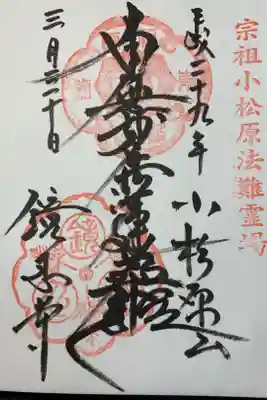 宗祖小松原法難霊場
平成二十九年 小松原山
南無妙法蓮華経
三月三十日 鏡忍寺
鏡